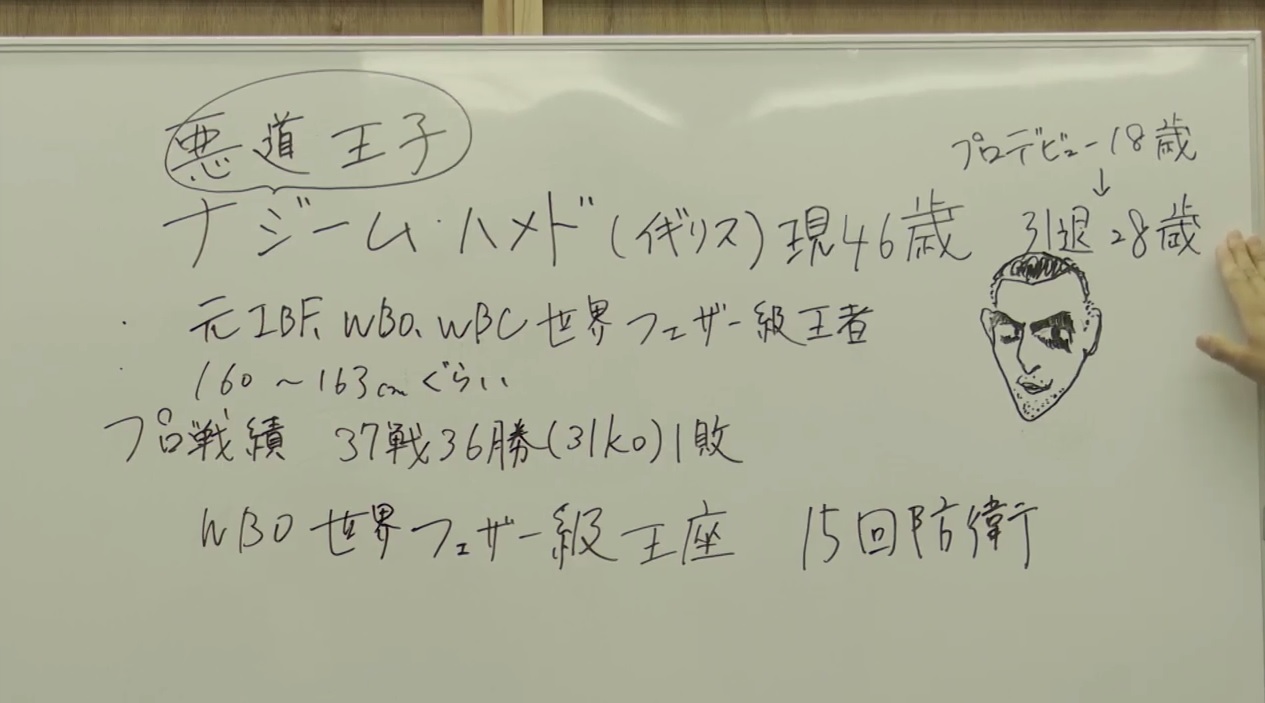 悪道王子
プロデビュー18歳
↓
ナジーム・ハメド(イギリス)現46歳 引退28歳
・元IBF、WBO、WBC世界フェザー級王者
・160〜163cmぐらい
プロ戦績 37戦36勝(31ko)1敗
WBO世界フェザー級王座 15回防衛